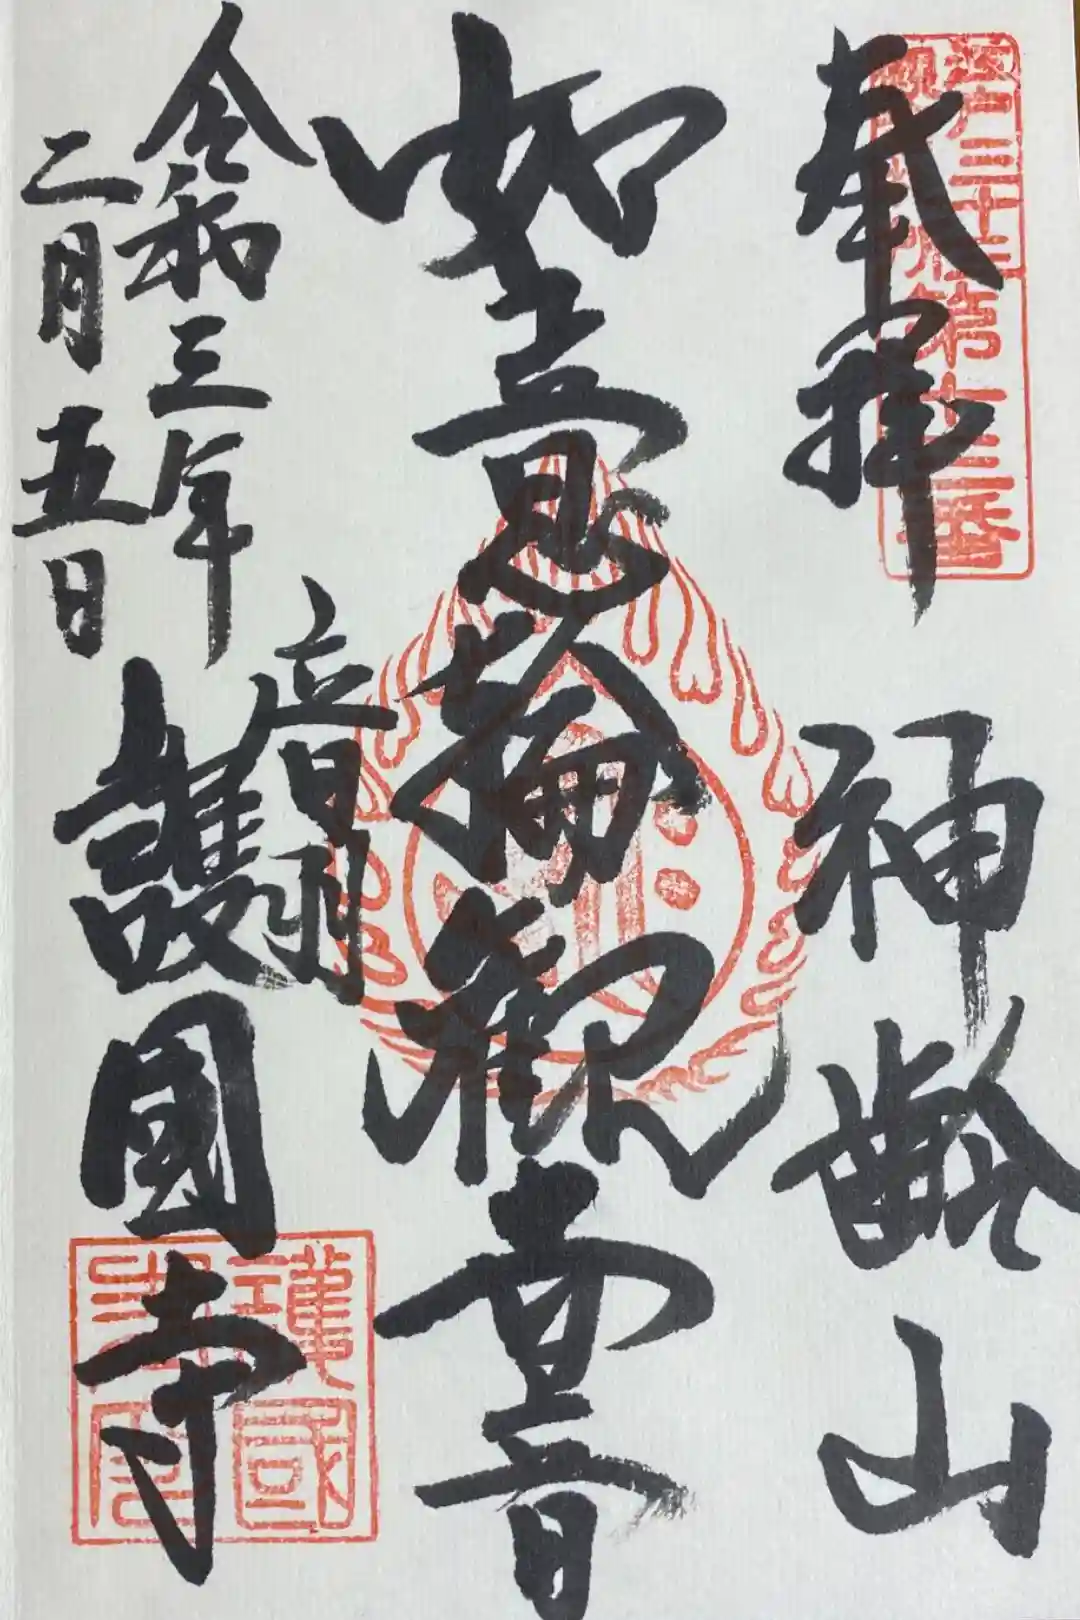 江戸三十三
観音札所第十三番
奉拝 神齢山
如意輪観世音
音羽
護國寺
令和三年
二月五日